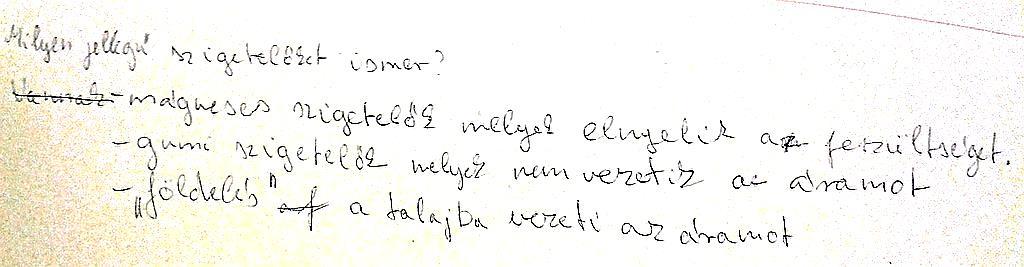 Milyen jellegű szigetelőket ismer?
Vannak - mágneses szigetelők melyek elnyelik a feszültséget.
- gumi szigetelők melyek nem vezetik az áramot
- "földelés" a talajba vezeti az áramot